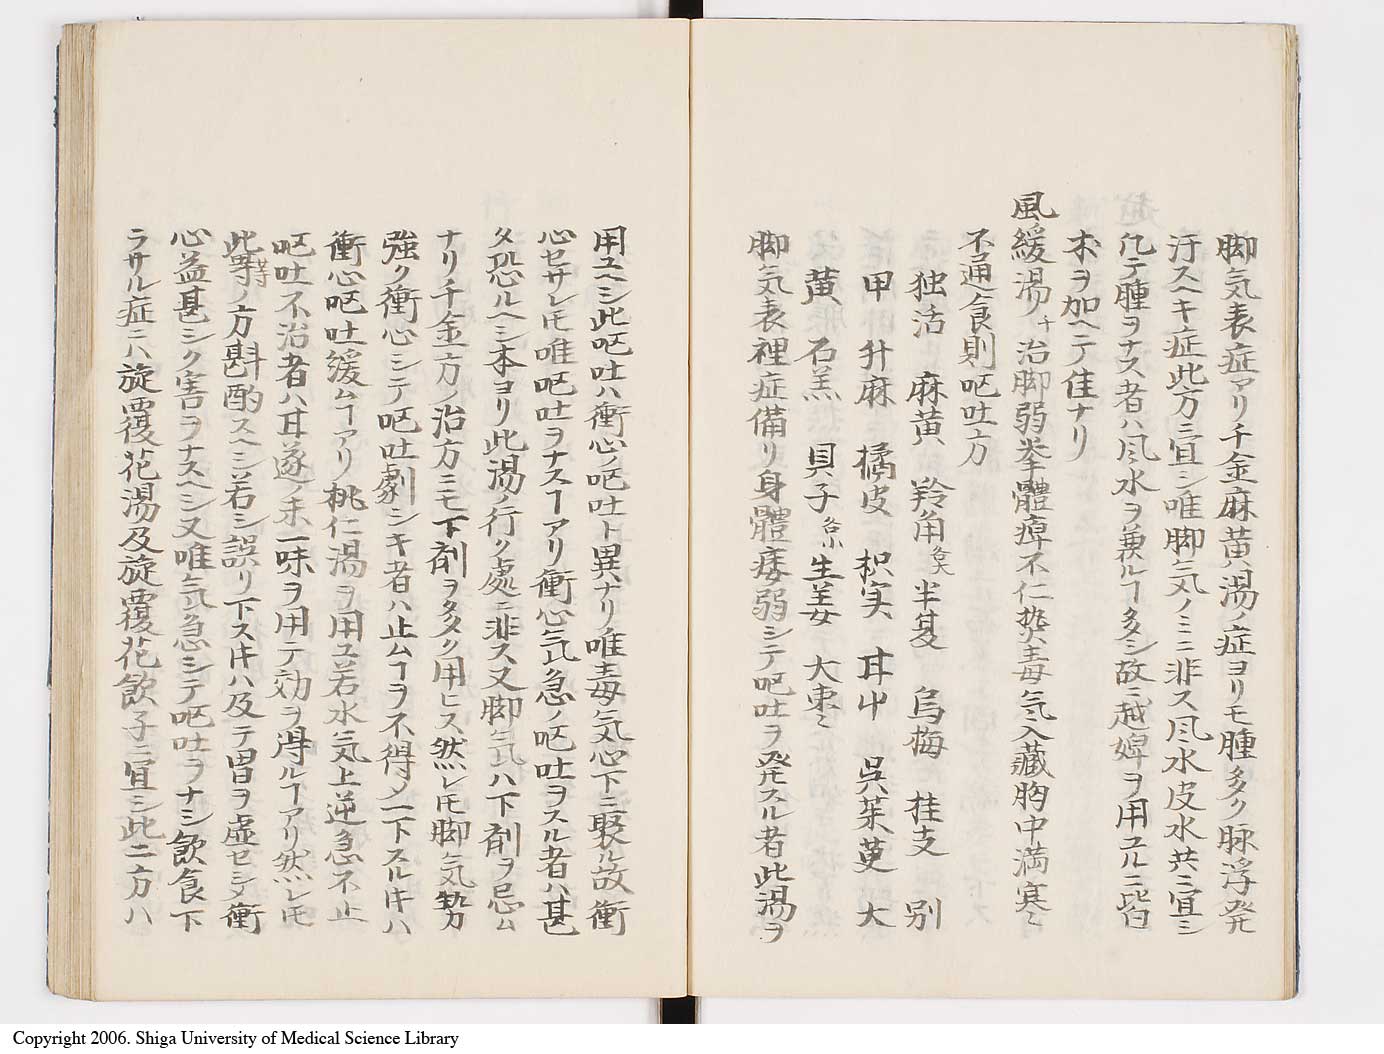 脚気表症アリ千金麻黄湯ノ症ヨリモ腫多ク脉浮発
汗スヘキ症此方ニ宜シ唯脚気ノミニ非ス風水皮水共ニ宜シ
凡テ腫ヲナス者ハ風水ヲ兼ルヿ多シ故ニ越婢ヲ用ユルニ皆
朮ヲ加ヘテ佳ナリ
風緩湯 千 治脚弱拳體痺不仁熱毒気入藏胸中満寒〻
不通食則呕吐方
独活 麻黄 羚角 各大 半夏 烏梅 桂支 別
甲 升麻 橘皮 枳実 甘艸 呉茱萸 大
黄 石羔 貝子 各小 生姜 大棗〻
脚気表裡症備リ身體痿弱シテ呕吐ヲ発スル者此湯ヲ
用ユヘシ此呕吐ハ衝心ノ呕吐ト異ナリ唯毒気心下ニ聚ル故衝
心セサレ𪜈唯呕吐ヲナスヿアリ衝心気急ノ呕吐ヲスル者ハ甚
タ恐ルヘシ本ヨリ此湯ノ行ク處ニ非ス又脚気ハ下剤ヲ忌ム
ナリ千金方ノ治方ニモ下剤ヲ多ク用ヒス然レ𪜈脚気勢力
強ク衝心シテ呕吐劇シキ者ハ止ムヿヲ不得〆一下スルキハ
衝心呕吐緩ムヿアリ桃仁湯ヲ用ユ若水気上逆急不止
呕吐不治者ハ甘遂ノ末一味ヲ用テ効ヲ得ルヿアリ然レ𪜈
此等ノ方斟酌スヘシ若シ誤リ下スキハ及テ胃ヲ虚セシメ衝
心益甚シク害ヲナスヘシ又唯気急シテ呕吐ヲナシ飲食下
ラサル症ニハ旋覆花湯及旋覆花飲子ニ宜シ此二方ハ
Copyright 2006. Shiga University of Medical Science Library